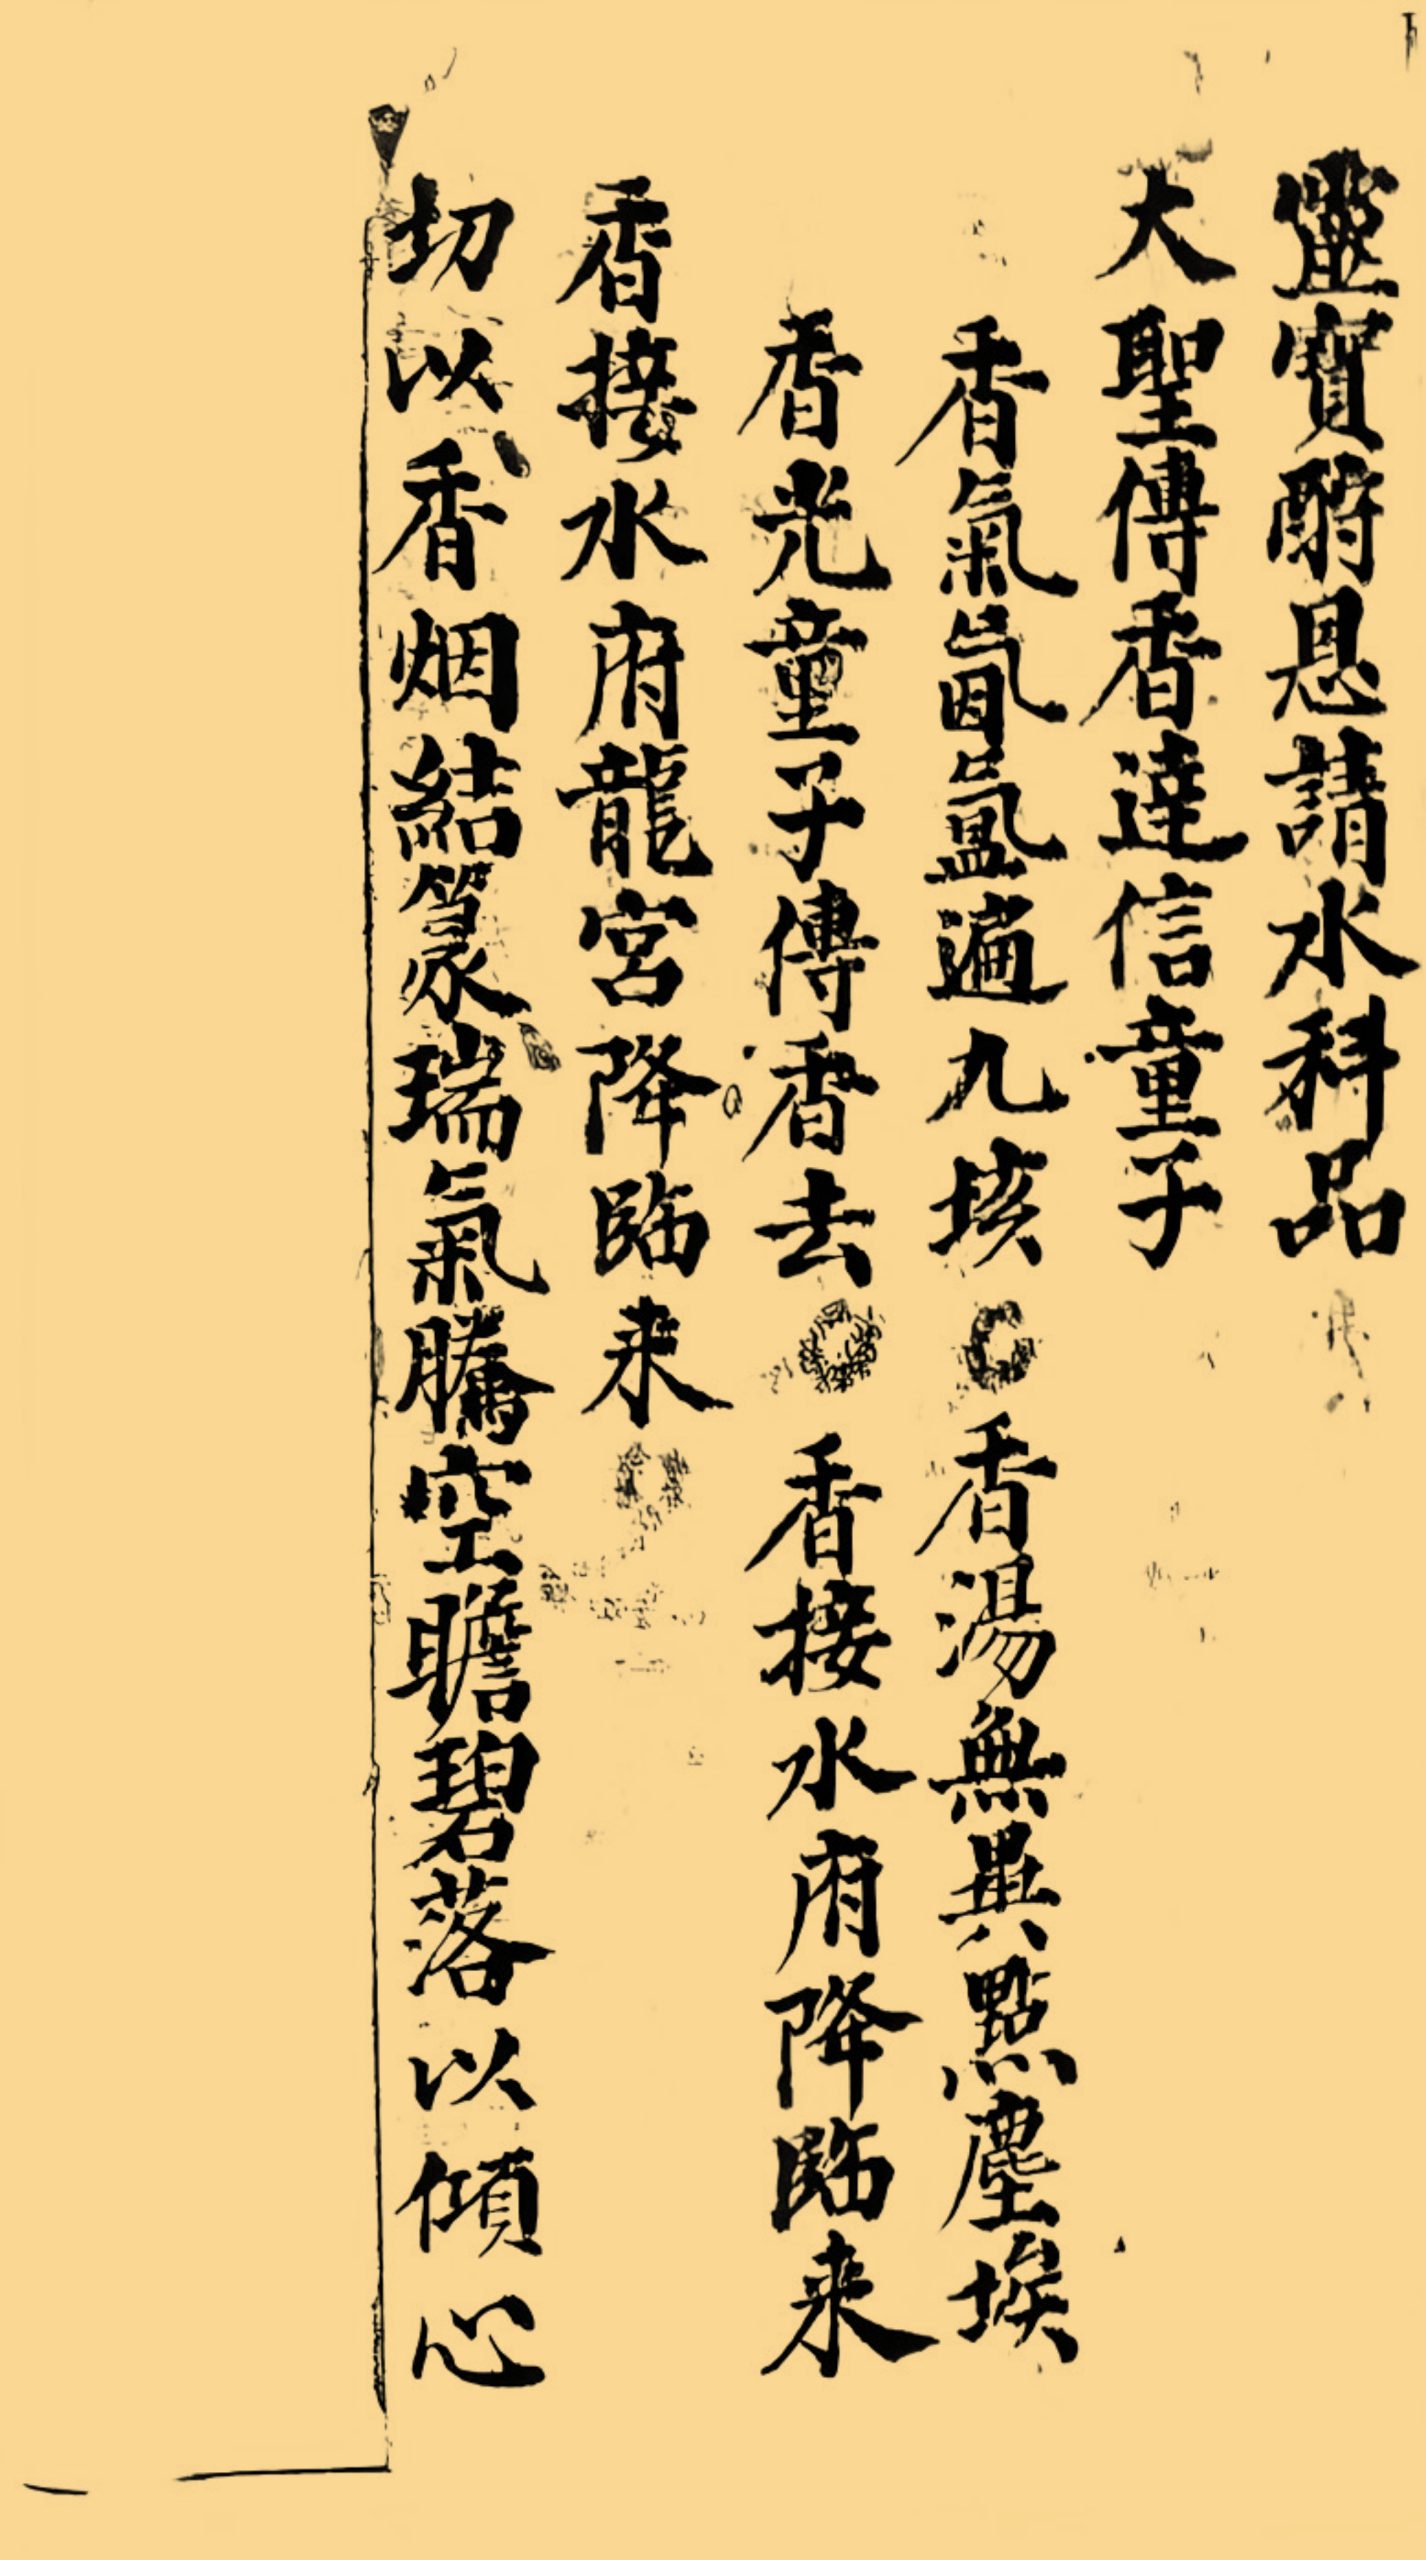 靈寳酧恩請水科品
大聖傳香達信童子
香氣氤氳遍九垓 香湯無異點塵埃
香光童子傳香去 香接水府降臨来
香接水府龍宮降臨来
切以香烟結篆瑞氣騰空瞻碧落以傾心